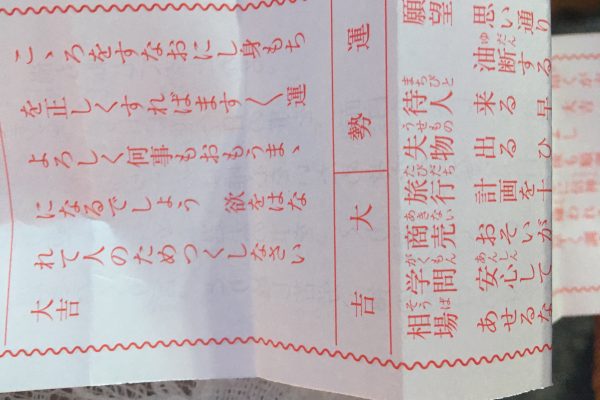 こゝろをすなおにし身もち
を正しくすればます〱運
よろしく何事もおもうまゝ
になるでしょう　欲をはな
れて人のためつくしなさい
大吉
運勢
大吉
願望 思い通り
油断する
待人 来る 早
失物 出る ひ
旅行 計画を十
商売 おそいが
学問 安心して
相場 あせるな